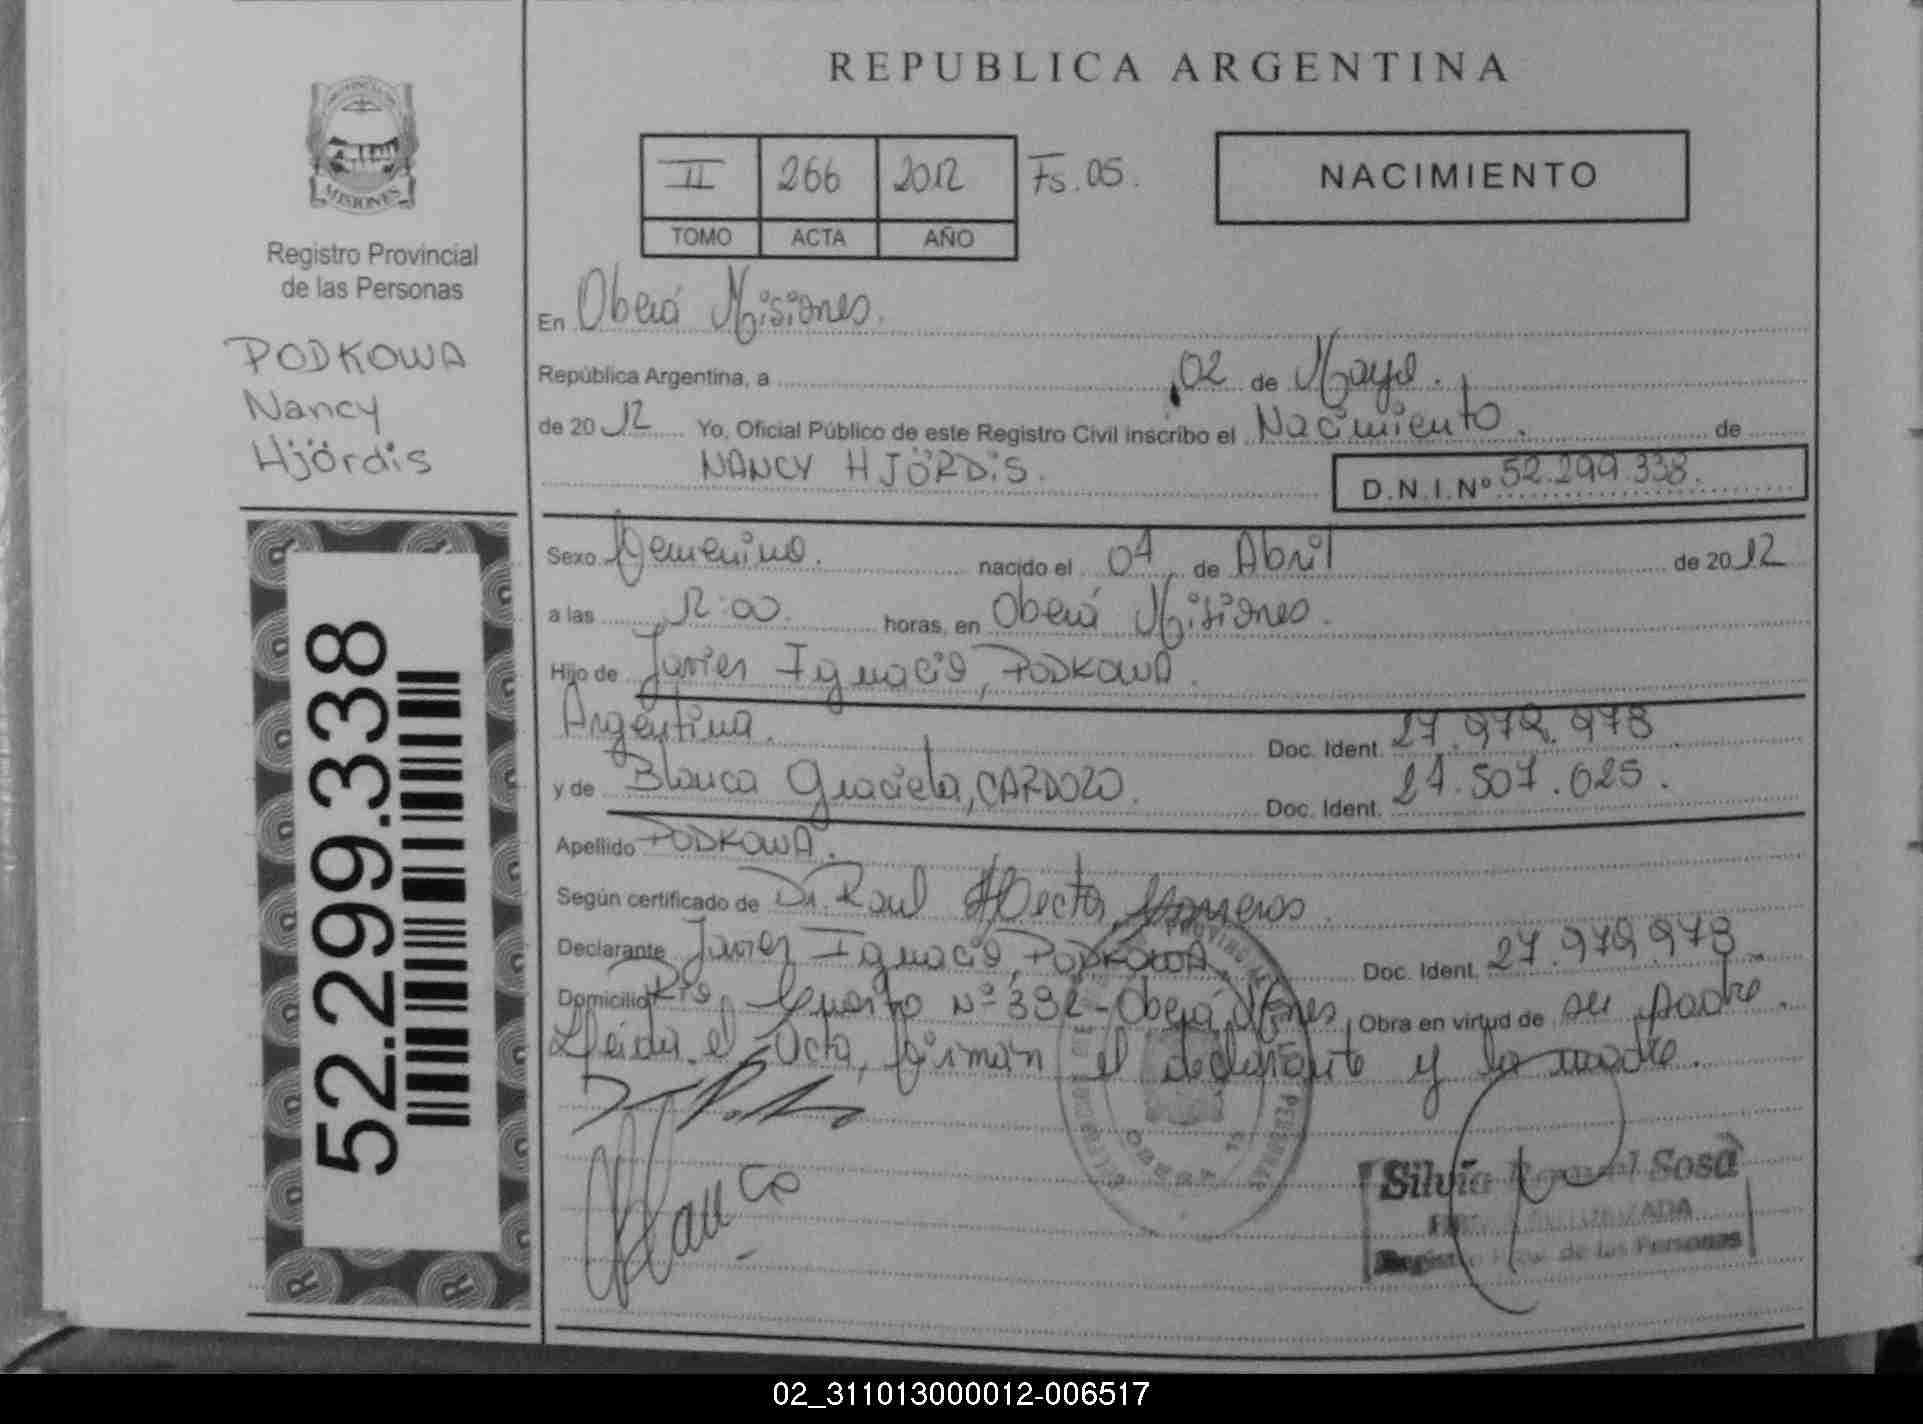 REPUBLICA ARGENTINA
MISIONES
Registro Provincial
de las Personas
PODKOWA
Nancy
Hjördis
52.299.338
II 266 2012 Fs. 05.
TOMO ACTA AÑO
NACIMIENTO
En Oberá Misiones.
República Argentina, a 02 de Mayo.
de 2012 Yo, Oficial Público de este Registro Civil inscribo el Nacimiento. de
NANCY HJÖRDIS. D.N.I.Nº 52.299.338.
Sexo Femenino. nacido el de Abril de 2012
a las 12:00. horas, en Oberá Misiones.
Hijo de Javier Ignacio, PODKOWA.
Argentina. Doc. Ident.
y de Blanca Graciela, CARDOZO. Doc. Ident.
Apellido PODKOWA.
Según certificado de Dr. Raul Hector
Declarante Javier Ignacio, PODKOWA. Doc. Ident.
Domicilio Nº 392 - Oberá Mnes, Obra en virtud de su padre.
Leída el Acta, firman el declarante y la madre.
Silvia Sosa
Registro Prov. de las Personas
02_311013000012-006517